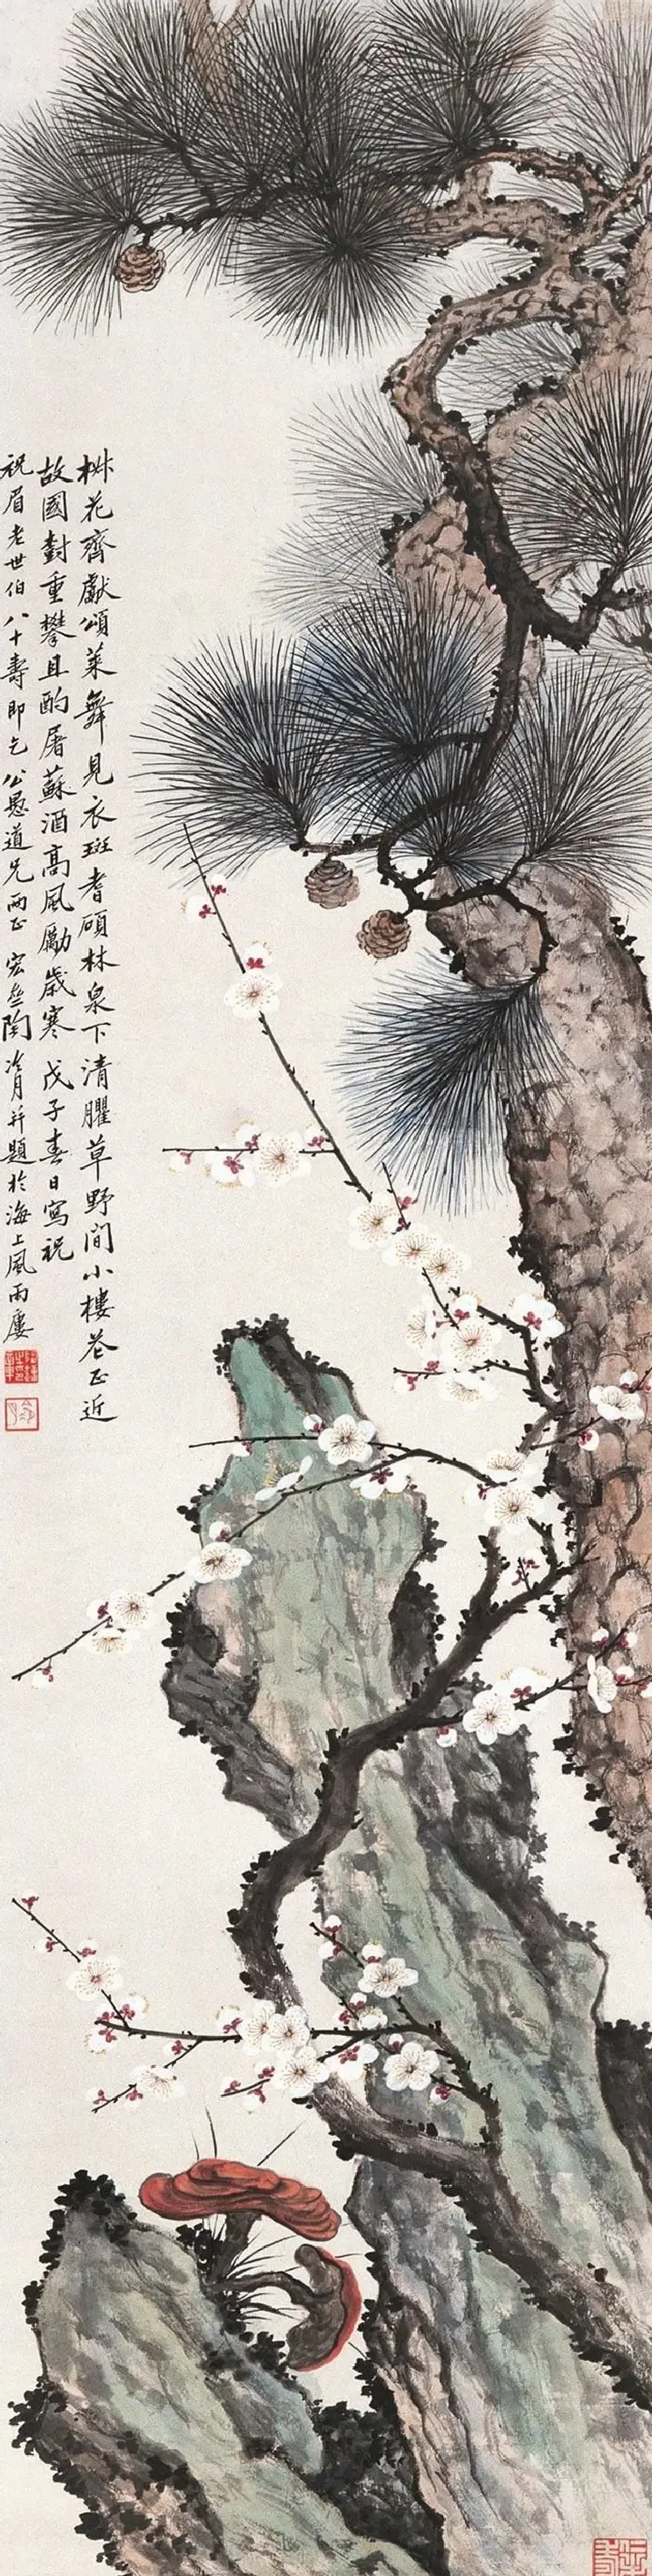 椒花齊獻頌萊舞見衣斑耆碩林泉下清臞草野間小樓花正近
故國對重攀且酌屠蘇酒高風勵歲寒 戊子春日寫祝
祝眉老世伯八十壽即乞公愚道兄兩正 宏 陶冷月并題於海上風雨廔